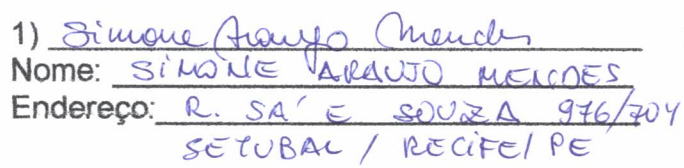 1) Simone Araujo Mendes
Nome: SIMONE ARAUJO MENDES
Endereço: R. SA' E SOUZA 976/704
SETUBAL / RECIFE/ PE